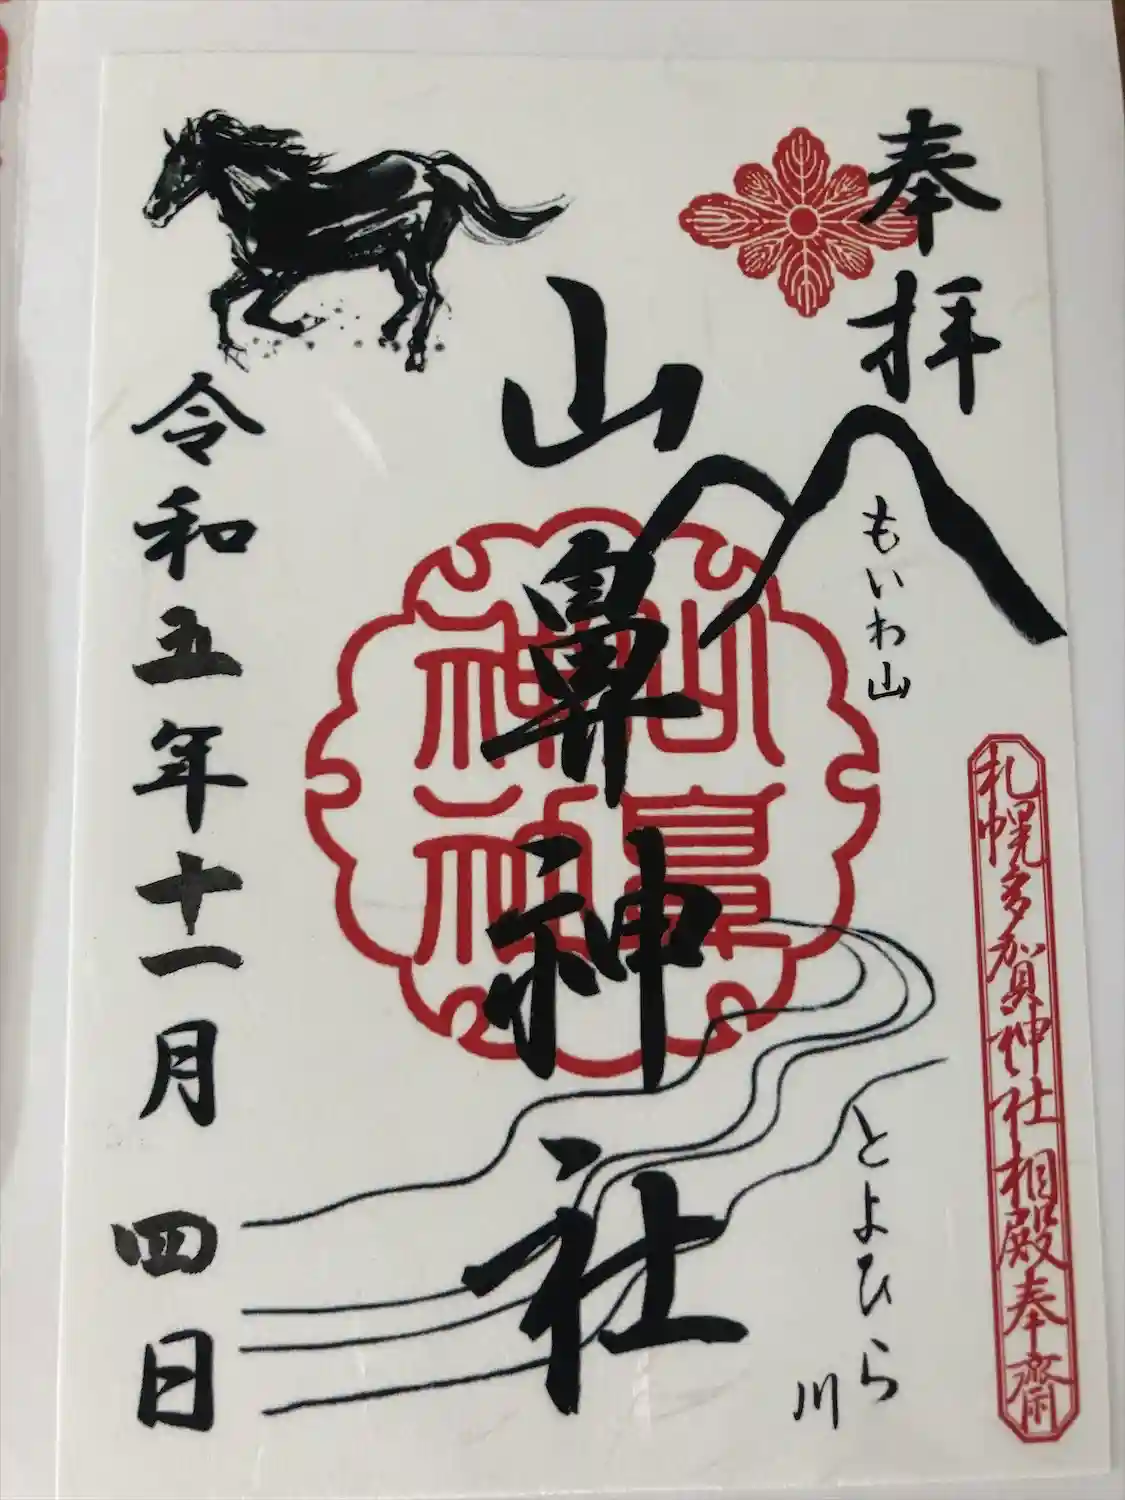 奉拝
もいわ山
札幌多賀神社相殿奉齋
とよひら川
山鼻神社
山鼻神社
令和五年十一月四日